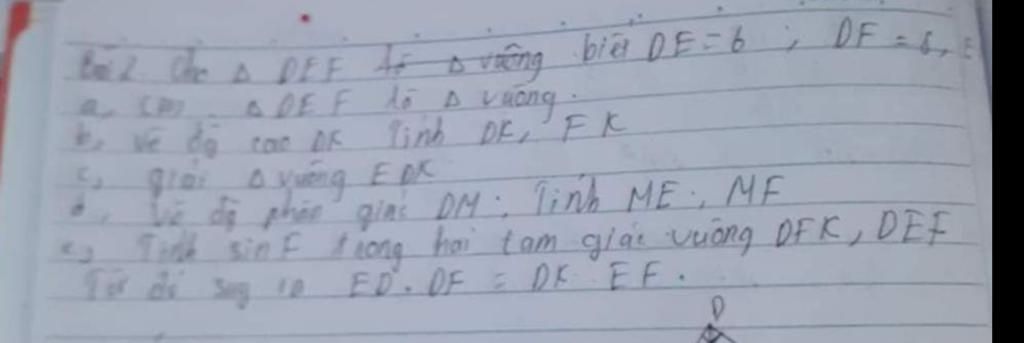 Bài 2. Cho Δ DEF là Δ vuông biết DE = 6 ; DF = 8, E
a, cm. Δ DEF là Δ vuông.
b, Vẽ đg cao DK Tính DK, FK
c, giải Δ vuông EDK
d, Vẽ đg phân giác DM. Tính ME ; MF
e, Tính sin F trong hai tam giác vuông DFK, DEF
Từ đó suy ra ED. DF = DK. EF.
D